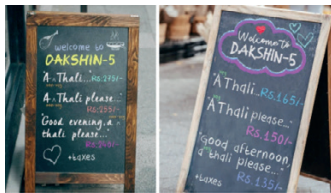 welcome to
DAKSHIN-5
"A Thali...Rs.275/-
"A Thali please..."
"Good evening, a
thali please..."
+taxes
Welcome to
DAKSHIN-5
"A Thali..."
Rs.165/-
"A Thali please..."
Rs.150/-
"Good afternoon,
a thali please..."
Rs.135/-
+taxes